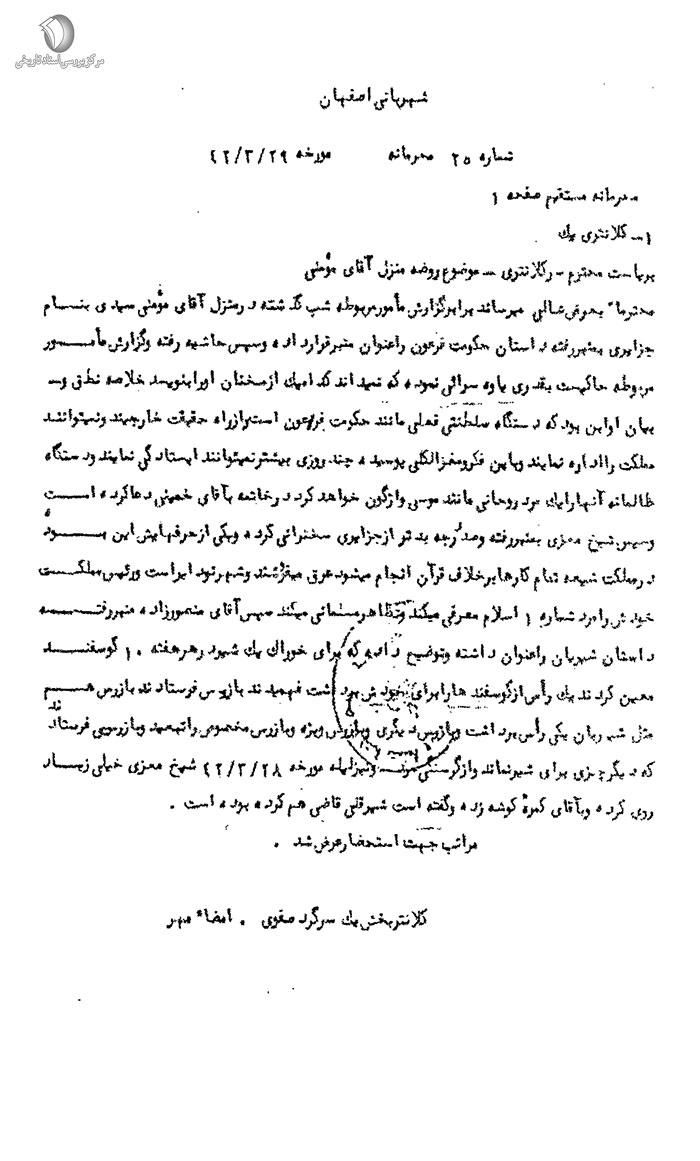 مرکز بررسی اسناد تاریخی
شهربانی اصفهان
شماره ۲۵ محرمانه مورخه ۴۲/۳/۲۹
محرمانه مستقیم صفحه ۱
۱ـ کلانتری یک
بریاست محترم سرکلانتری ـ موضوع روضه منزل آقای مؤمنی
محترما" بعرض عالی میرساند برابر گزارش مأمور مربوطه شب گذشته در منزل آقای مؤمنی سیدی بنام
جزایری بمنبر رفته داستان حکومت فرعون را عنوان منبر قرار داده و سپس حاشیه رفته و گزارش مأمور
مربوطه حاکیست بقدری یاوه سرائی نموده که نمیداند کدامیک از سخنان او را بنویسد خلاصه نطق و
بیان او این بود که دستگاه سلطنتی فعلی مانند حکومت فرعون است و از راه حقیقت خارجند و نمیتوانند
مملکت را اداره نمایند و با این فکر و مغز الکلی پوسیده چند روزی بیشتر نمیتوانند ایستادگی نمایند و دستگاه
ظالمانه آنها را یک مرد روحانی مانند موسی واژگون خواهد کرد در خاتمه بآقای خمینی دعا کرده است
و سپس شیخ معزی بمنبر رفته و صد درجه بدتر از جزایری سخنرانی کرده و یکی از حرفهایش این بوده
در مملکت شیعه تمام کارها بر خلاف قرآن انجام میشود عرق میفروشند و شهر نو دایر است و رئیس مملکت
خودش را مرد شماره ۱ اسلام معرفی میکند و تظاهر به مسلمانی میکند سپس آقای منصورزاده منبر رفته
داستان شیربان را عنوان داشته و توضیح داده که برای خوراک یک شیر در هر هفته ۱۰ گوسفند
معین کردند یک رأس از گوسفند ها را برای خودش برداشت فهمیدند بازپرس فرستادند بازرس هم
مثل شیربان یکی رأس برداشت و بازپرس دیگری و بازرس ویژه و بازرس مخصوص و بازرسی فرستادند
که دیگر چیزی برای شیر نماند و از گرسنگی مرد و نیز لیله مورخه ۴۲/۳/۲۸ شیخ معزی خیلی زیاد
روی کرده و بآقای کمره گوشه زده و گفته است شیر قلی قاضی هم کرده بوده است .
مراتب جهت استحضار عرض شد .
کلانتر بخش یک سرگرد صفوی . امضاء مهر